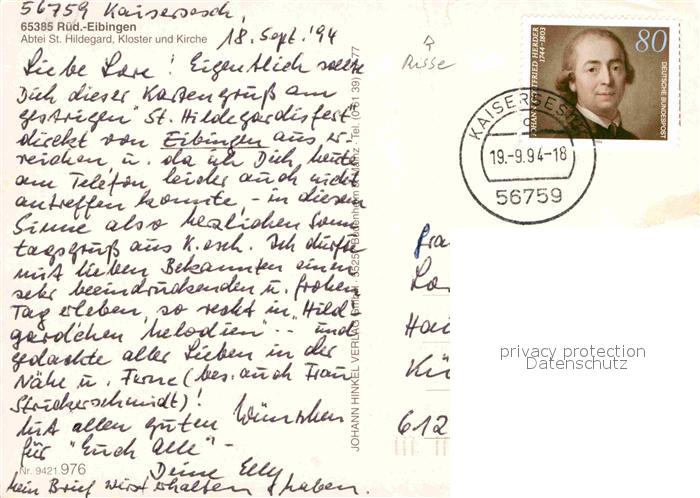 56759 Kaisersesch,
65385 Rüd.-Eibingen
Abtei St. Hildegard, Kloster und Kirche
18. Sept. '94
Liebe Lore! Eigentlich sollte
Dich dieser Kartengruß am
gestrigen "St. Hildegardisfest"
direkt von Eibingen aus er-
reichen u. da ich Dich heute
am Telefon, leider auch nicht
antreffen konnte, - in diesem
Sinne also herzlichen Sonn
tagsgruß aus K.esch. Ich durfte
mit lieben Bekannten einen
sehr beeindruckenden u. frohen
Tag erleben, so recht in "Hild
gard'chen Melodien" -- und
gedachte aller Lieben in der
Nähe u. Ferne (bes. auch Frau
Strickerschmidt)!
Mit allen guten Wünschen
für "Euch alle" -
Deine Elly
Mein Brief wirst erhalten haben.
Nr. 9421.976
JOHANN HINKEL VERLAG
Risse
JOHANN GOTTFRIED HERDER
1744-1803
80
DEUTSCHE BUNDESPOST
KAISERSESCH
19.-9.94-18
56759
Fra
Lo
Hai
Kü
612
privacy protection
Datenschutz